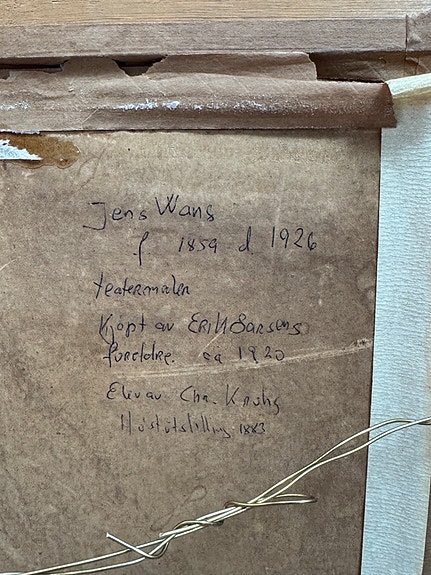 Jens Wang
f. 1859 d 1926
teatermaler
Kjöpt av Erik Larsens
foreldre. ca 1920
Elev av Chr. Krohg
Höstutstilling 1883